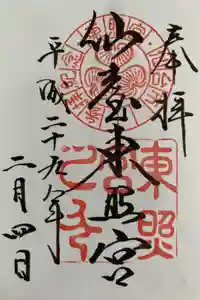 奉拝
仙臺東照宮
平成二十九年
二月四日
東照宮